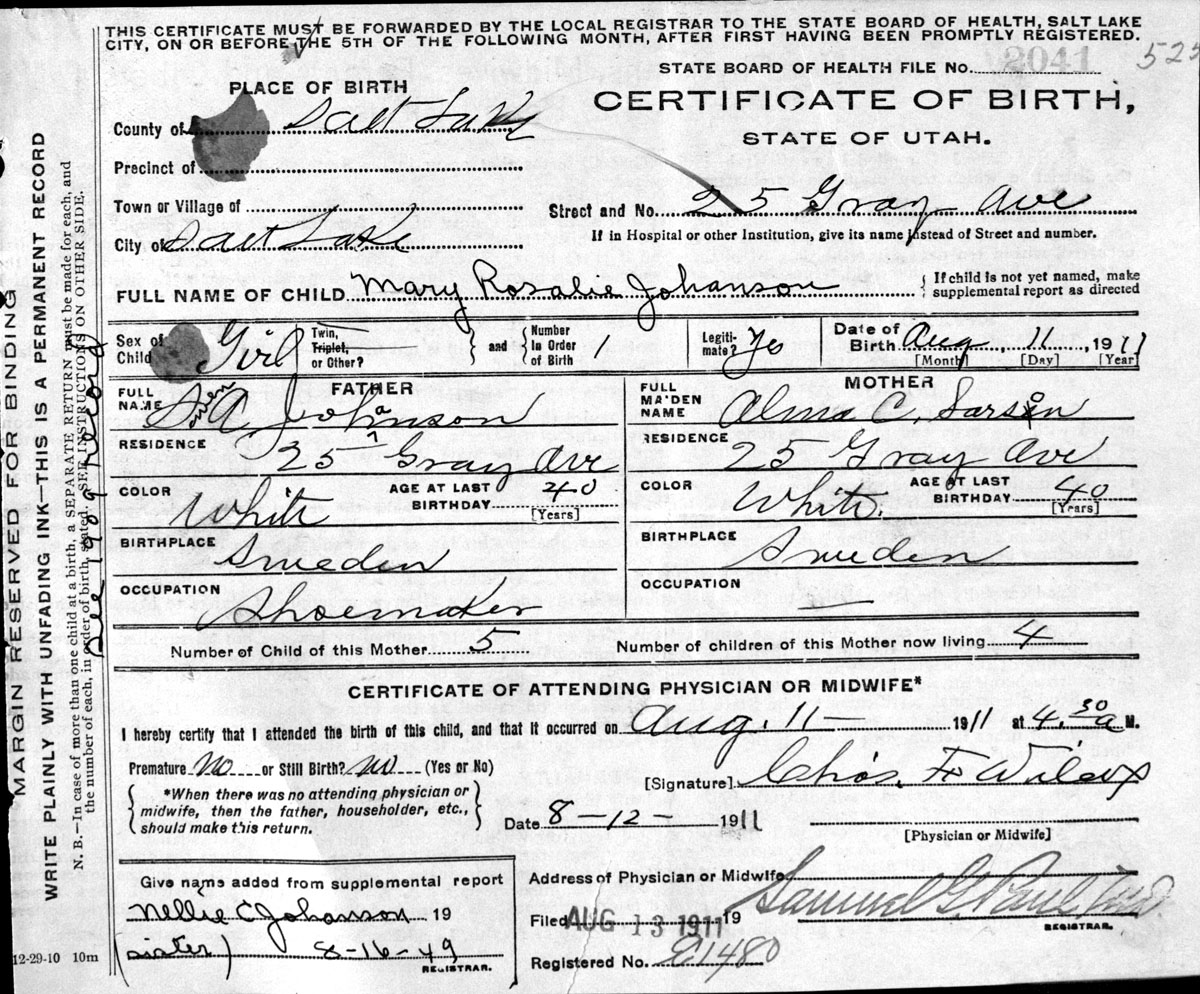 THIS CERTIFICATE MUST BE FORWARDED BY THE LOCAL REGISTRAR TO THE STATE BOARD OF HEALTH, SALT LAKE
CITY, ON OR BEFORE THE 5TH OF THE FOLLOWING MONTH, AFTER FIRST HAVING BEEN PROMPTLY REGISTERED.
STATE BOARD OF HEALTH FILE No. 2041 525
PLACE OF BIRTH
CERTIFICATE OF BIRTH,
STATE OF UTAH.
County of Salt Lake
Precinct of
Town or Village of
Street and No. 25 Gray Ave
City of Salt Lake
If in Hospital or other Institution, give its name instead of Street and number.
FULL NAME OF CHILD Mary Rosalie Johanson { If child is not yet named, make supplemental report as directed
Sex of Child Girl Twin, Triplet, or Other? } and { Number In Order of Birth 1 Legiti-mate? Yes Date of Birth Aug, 11, 1911 [Month] [Day] [Year]
FATHER
MOTHER
FULL NAME A Johanson
FULL MAIDEN NAME Alma C. Larson
RESIDENCE 25 Gray Ave
RESIDENCE 25 Gray Ave
COLOR White AGE AT LAST BIRTHDAY 40 [Years]
COLOR White. AGE AT LAST BIRTHDAY 40 [Years]
BIRTHPLACE Sweden
BIRTHPLACE Sweden
OCCUPATION Shoemaker
OCCUPATION —
Number of Child of this Mother 5 Number of children of this Mother now living 4
CERTIFICATE OF ATTENDING PHYSICIAN OR MIDWIFE*
I hereby certify that I attended the birth of this child, and that it occurred on Aug. 11 — 1911 at 4.30 a M.
Premature No or Still Birth? No (Yes or No)
[Signature] Chas. F. Wilcox
{ *When there was no attending physician or midwife, then the father, householder, etc., should make this return. }
Date 8-12- 1911
[Physician or Midwife]
Give name added from supplemental report
Nellie C Johanson 19
(sister) 8-16-49
REGISTRAR.
Address of Physician or Midwife
Filed AUG 13 1911 19 Samuel G. Paul M.D.
REGISTRAR.
Registered No. E1480
12-29-10 10m
MARGIN RESERVED FOR BINDING
WRITE PLAINLY WITH UNFADING INK—THIS IS A PERMANENT RECORD
N. B.—In case of more than one child at a birth, a SEPARATE RETURN must be made for each, and
the number of each, in order of birth, stated. SEE INSTRUCTIONS ON OTHER SIDE.